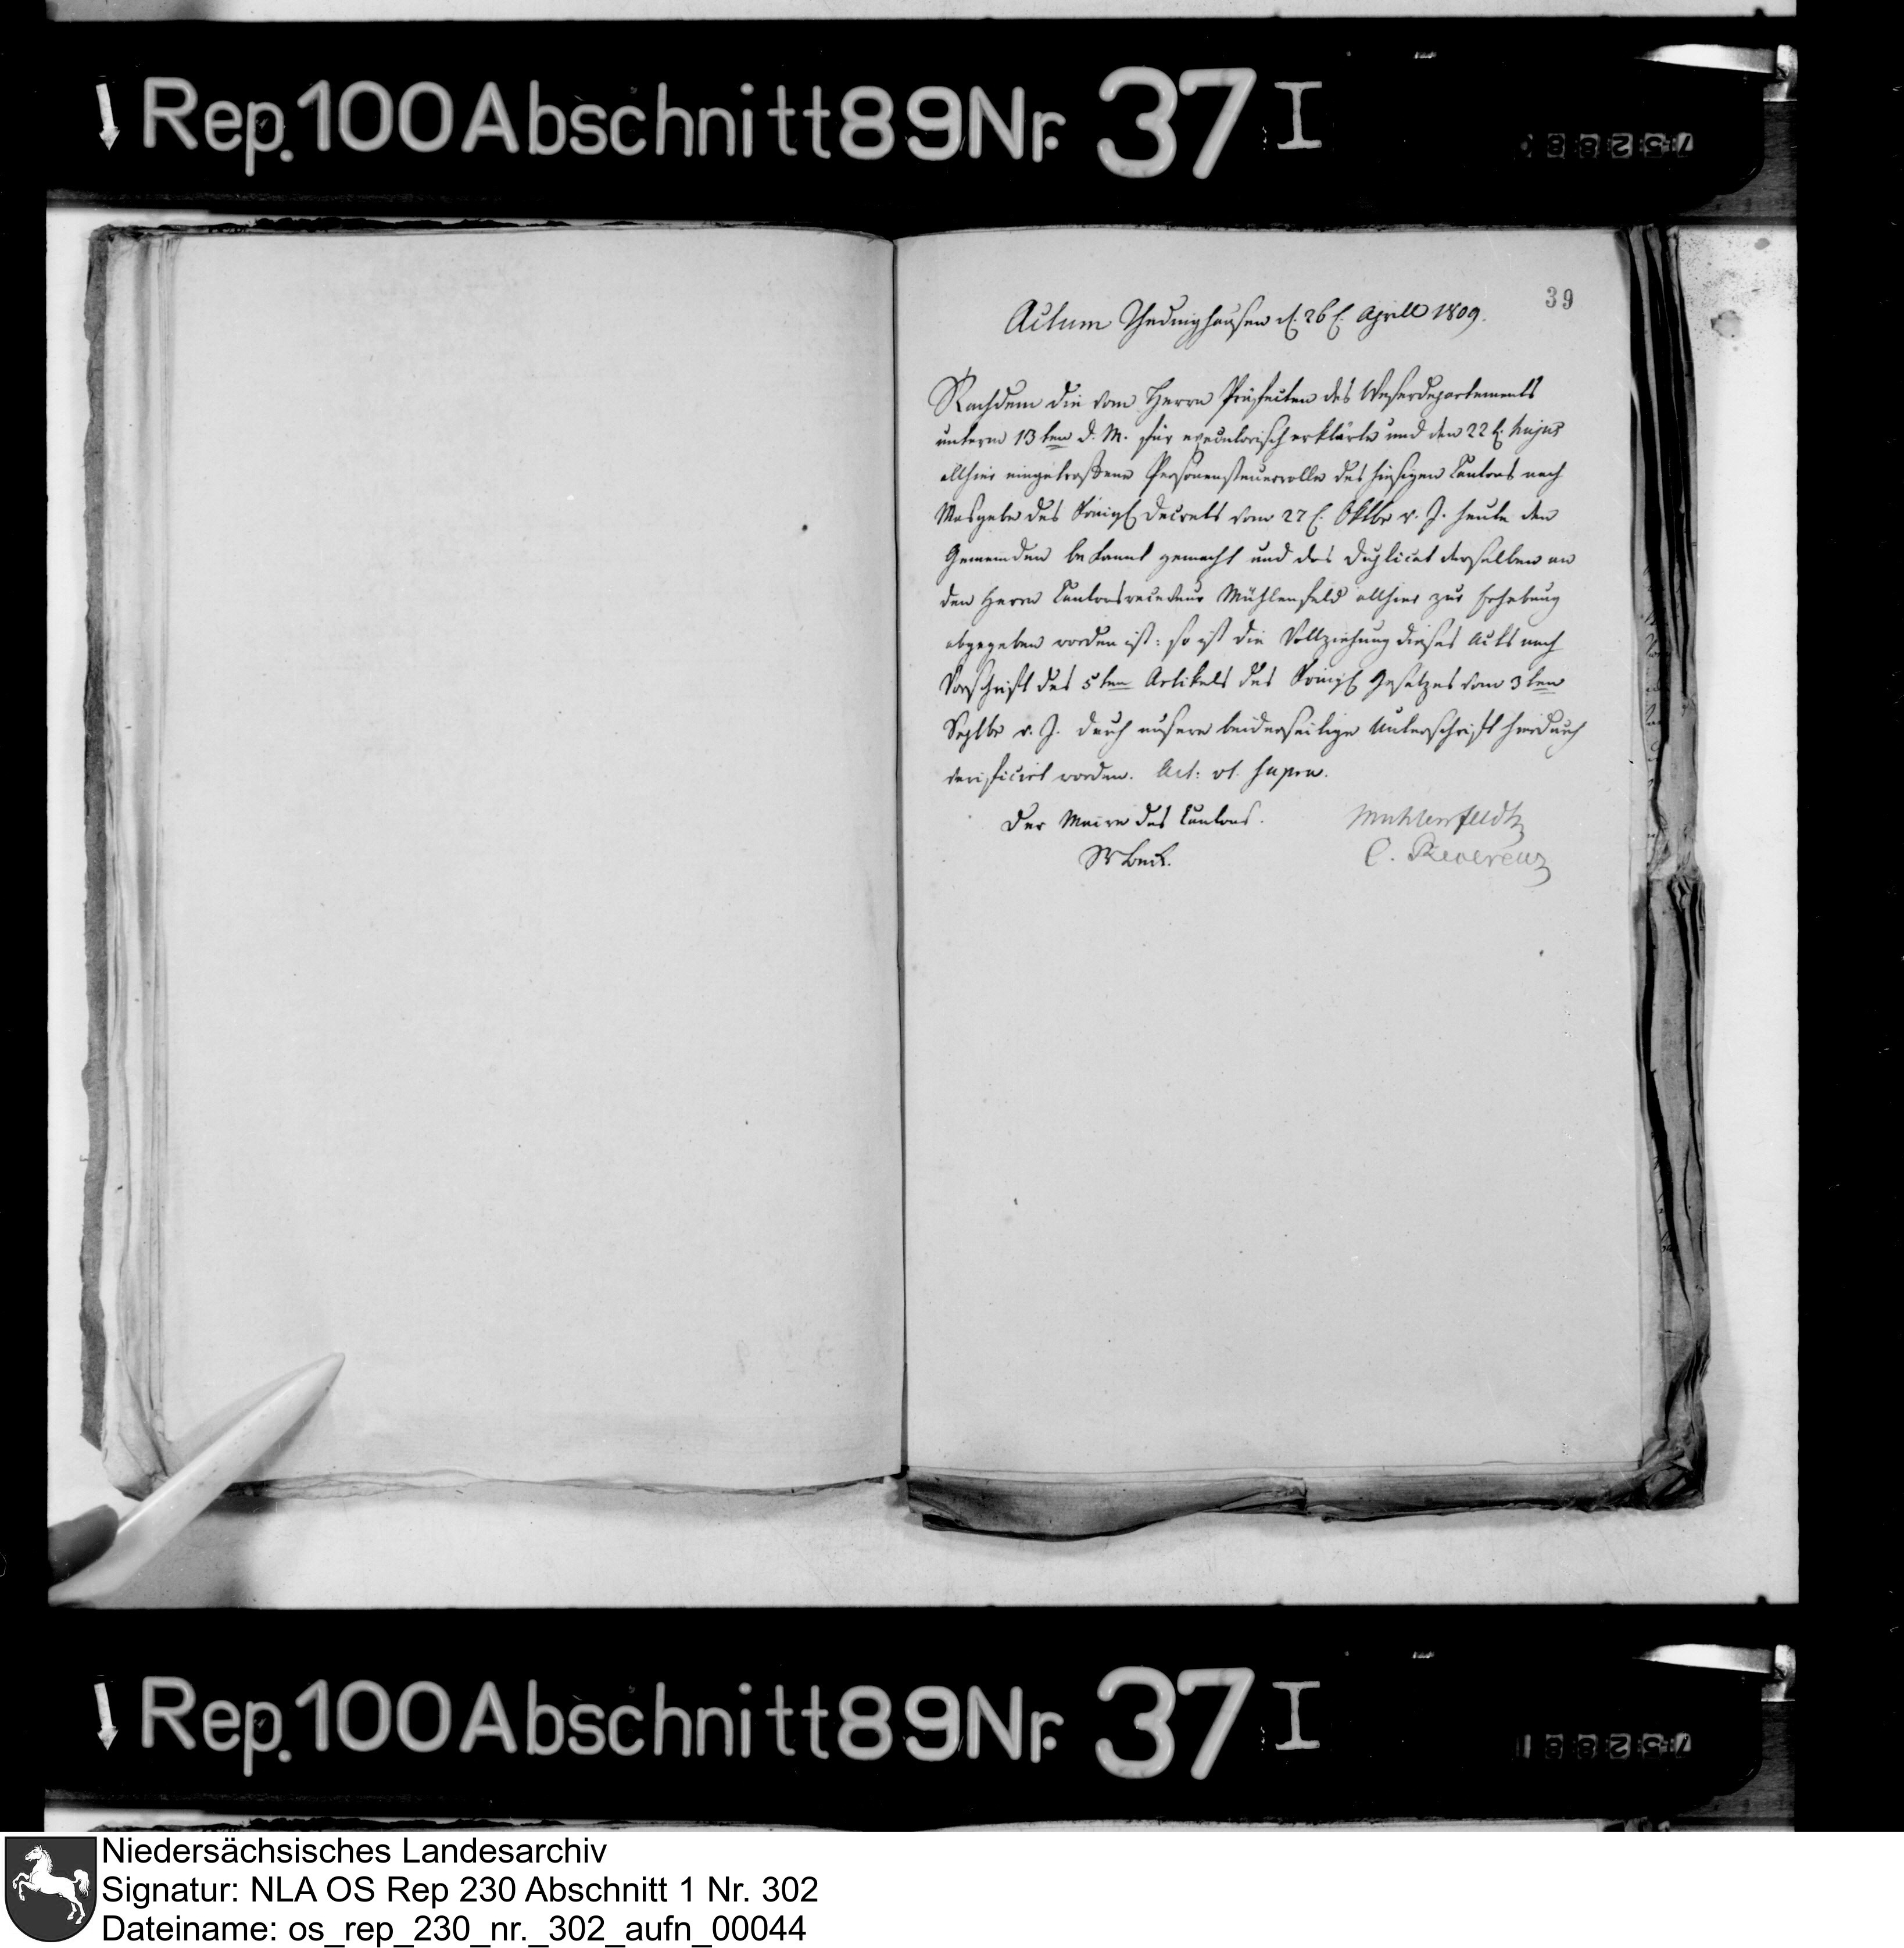 Rep. 100 Abschnitt 89 Nr. 37 I
39
Actum Thedinghausen d. 26 t. Aprill 1809.
Nachdem die vom Herrn Präfecten des Weserdepartements
unterm 13ten d. M. für executorisch erklärte und den 22 t. hujus
allhier eingetroffene Personensteuerrolle des hiesigen Cantons nach
Masgabe des Königl Decrets vom 27 t. Oktbr v. J. heute den
Gemeinden bekannt gemacht und das Duplicat derselben an
den Herrn Cantonsreceveur Mühlenfeld allhier zur Erhebung
abgegeben worden ist: so ist die Vollziehung dieses Acts nach
Vorschrift des 5ten Artikels des Königl Gesetzes vom 3ten
Septbr v. J. durch unsere beiderseitige Unterschrift hierdurch
verificirt worden. Act: ut supra.
Der Maire des Cantons.
Muhlenfeldt
C. Receveur
Rep. 100 Abschnitt 89 Nr. 37 I
Niedersächsisches Landesarchiv
Signatur: NLA OS Rep 230 Abschnitt 1 Nr. 302
Dateiname: os_rep_230_nr._302_aufn_00044